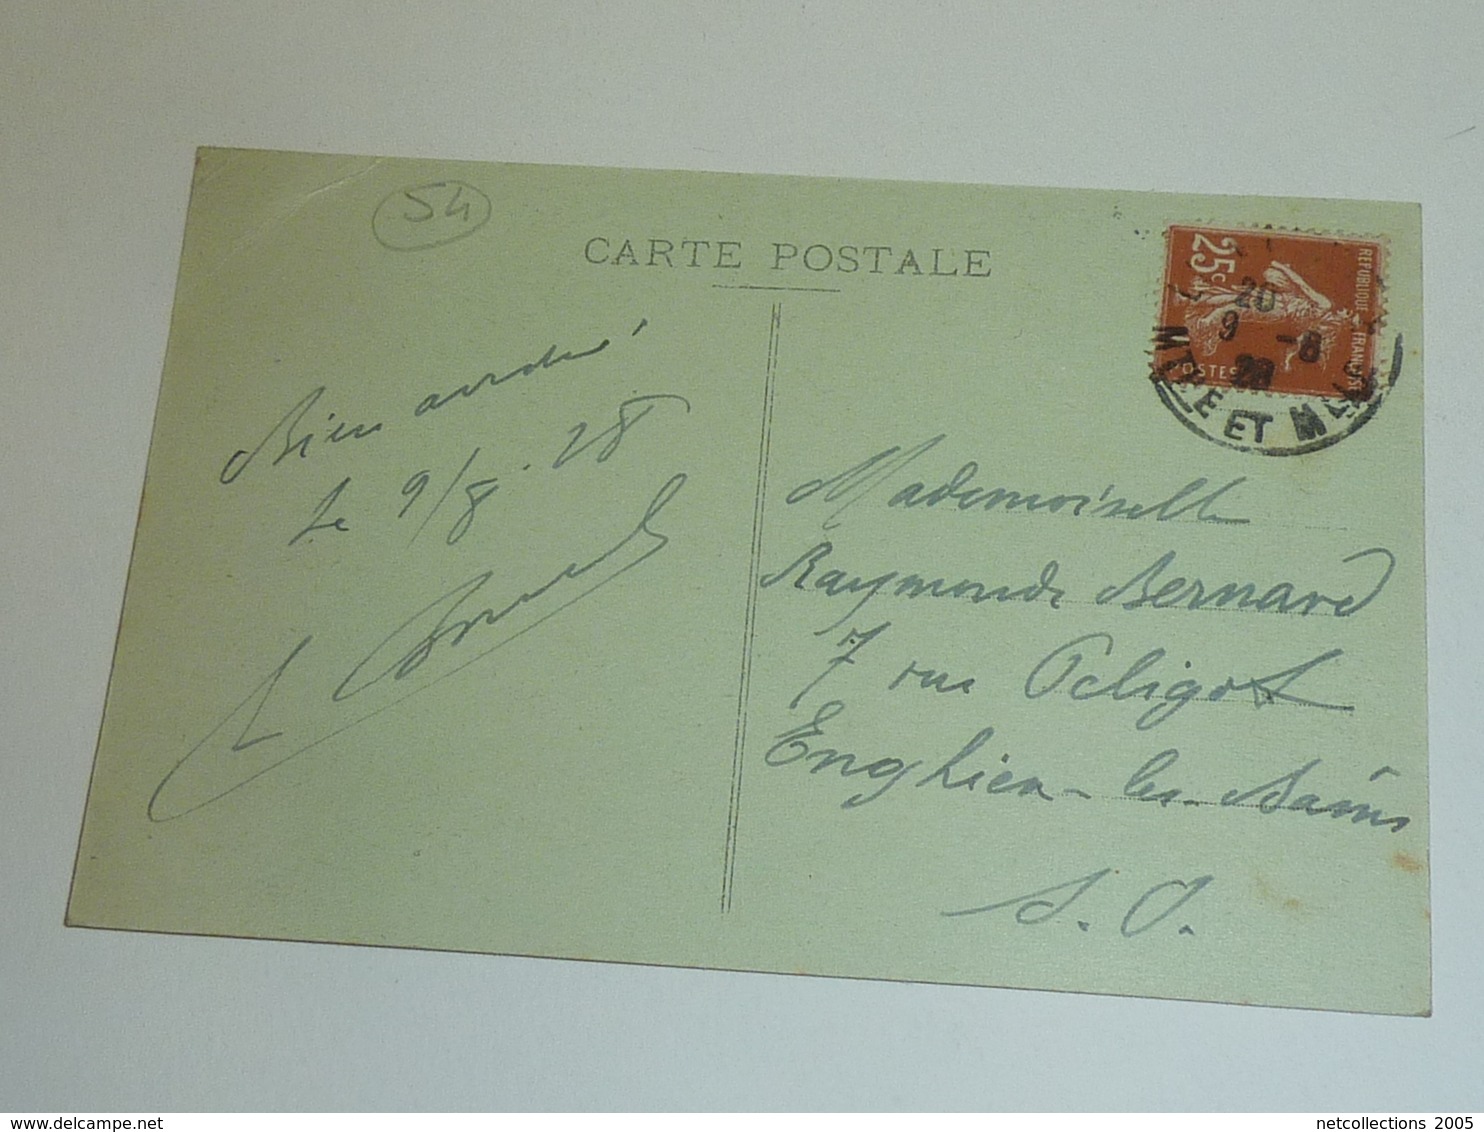 54
CARTE POSTALE
25c
REPUBLIQUE FRANÇAISE
POSTES
20
9 -8
28
MTHE ET MLLE
Bien
Le 9/8.28
Mademoiselle
Raymonde Bernard
7 rue Peligot
Enghien-les-Bains
S. O.
netcollections 2005